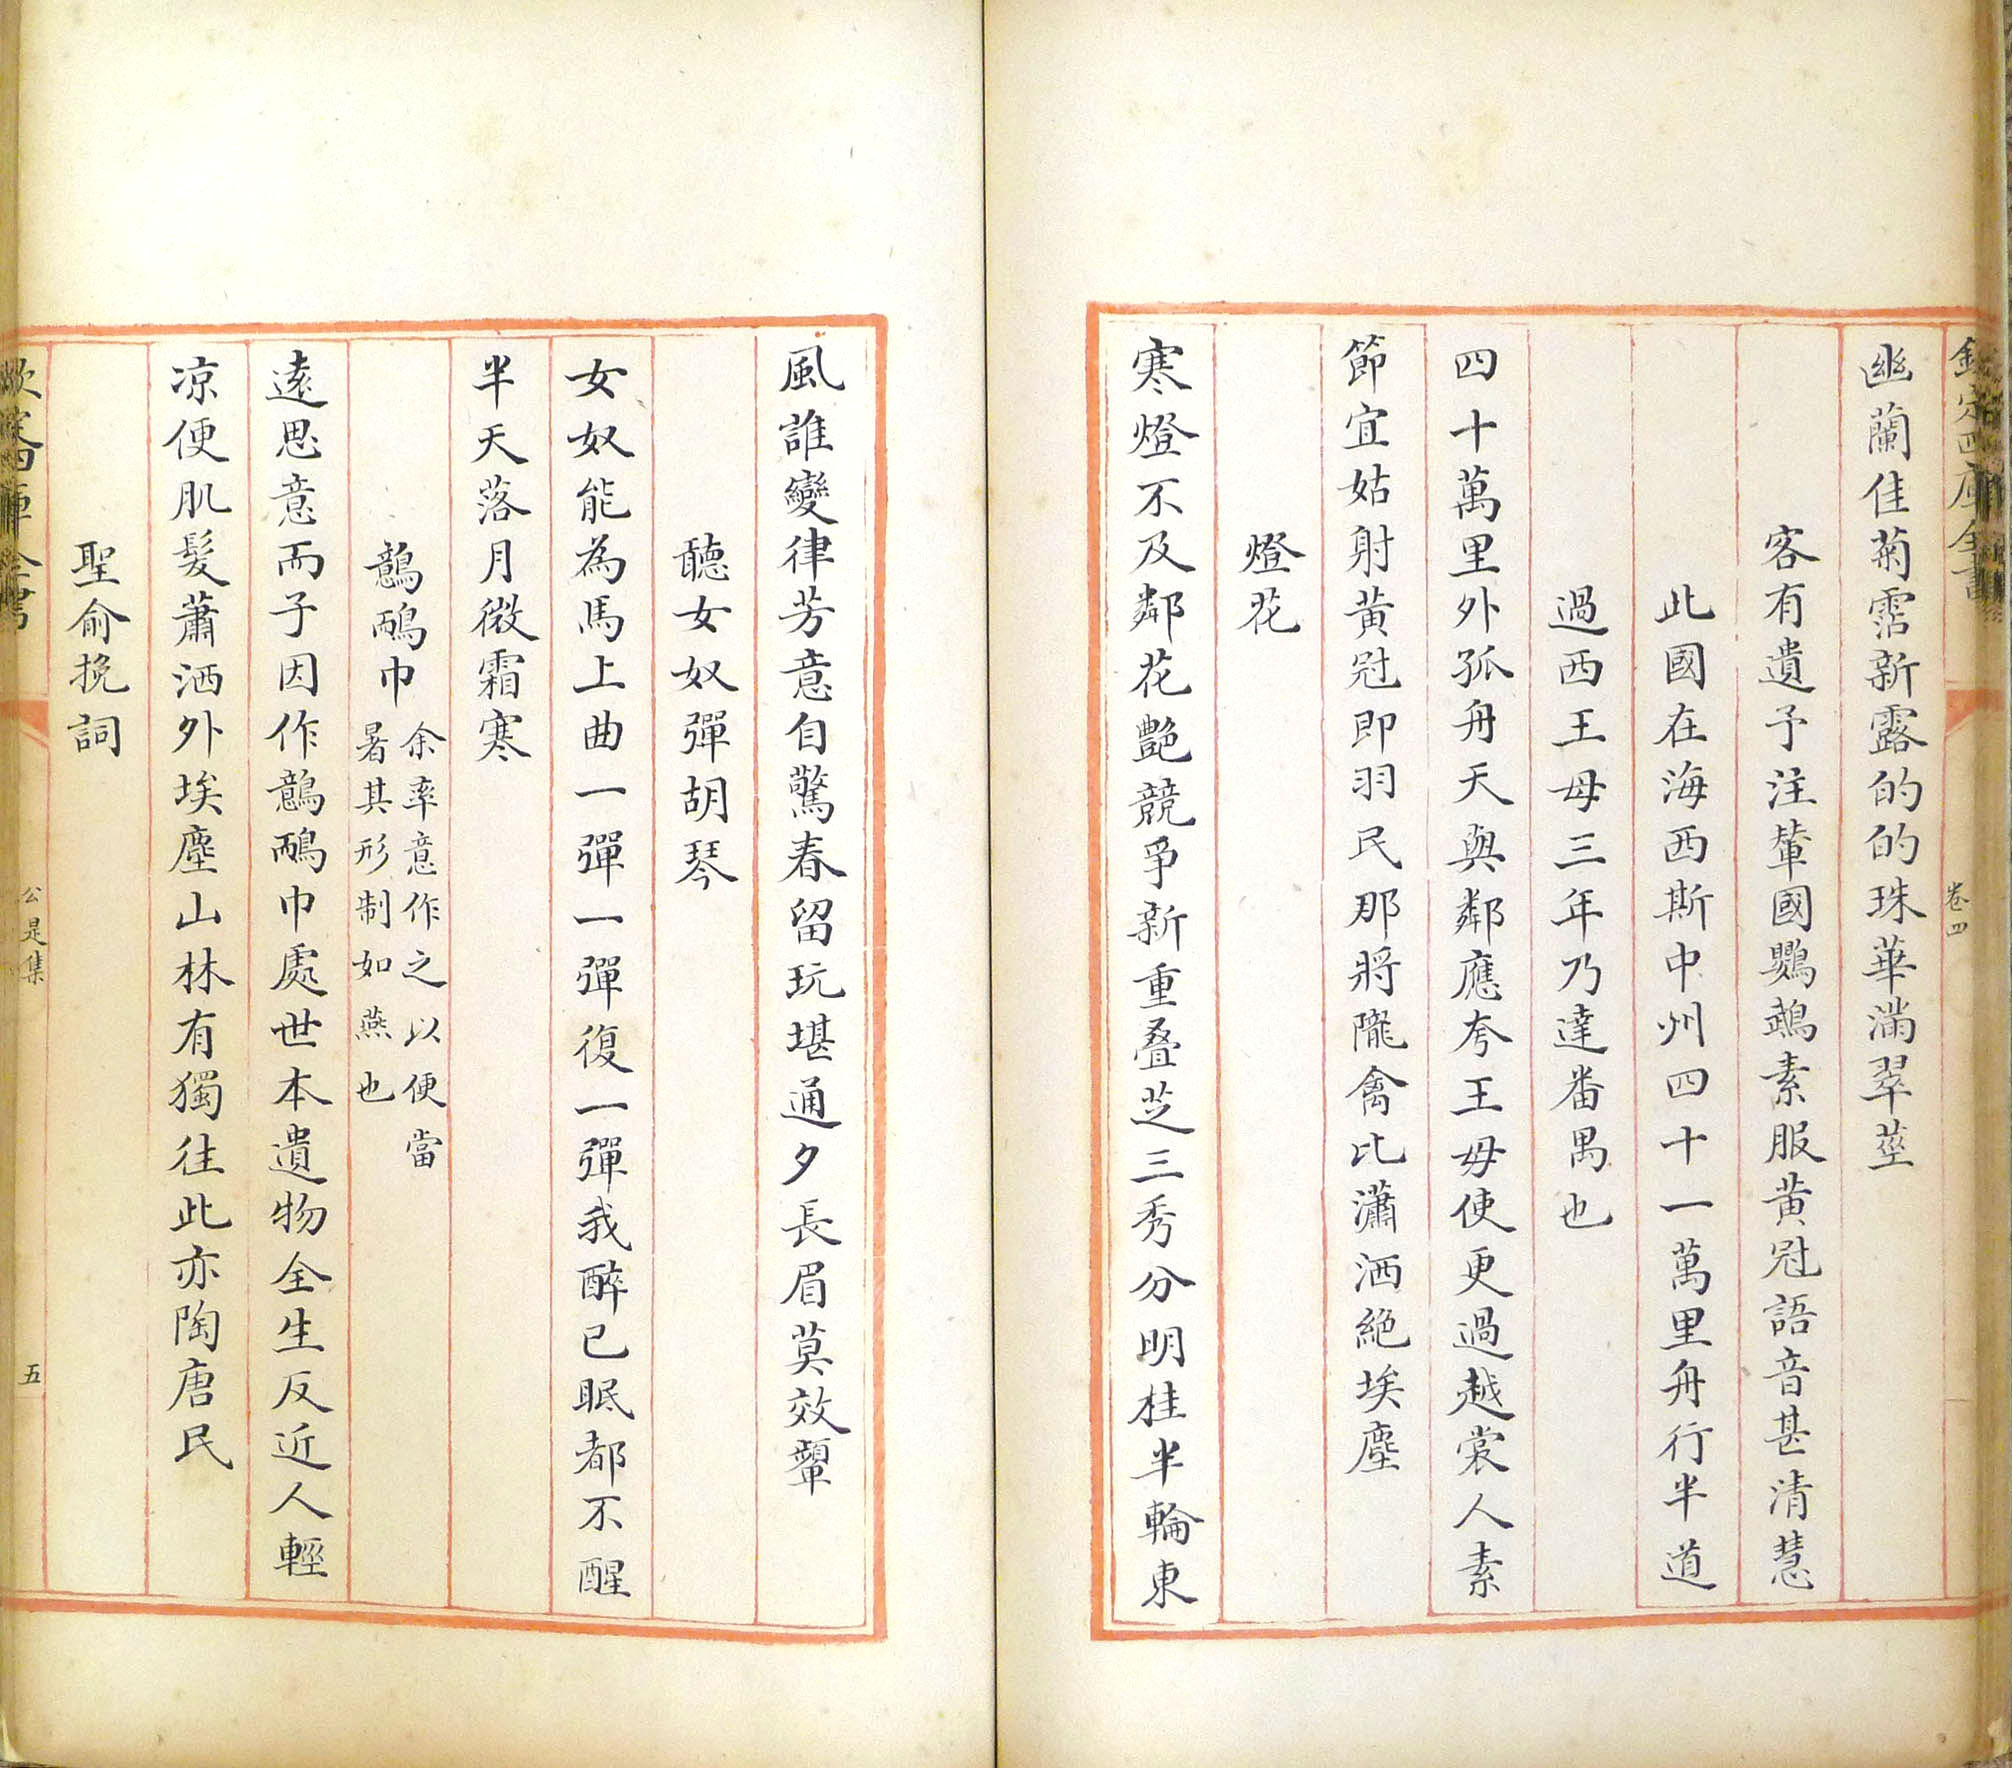 欽定四庫全書
卷四
幽蘭佳菊霑新露的的珠華滿翠莖
客有遺予注輦國鸚鵡素服黃冠語音甚清慧
此國在海西斯中州四十一萬里舟行半道
過西王母三年乃達番禺也
四十萬里外孤舟天與鄰應夸王母使更過越裳人素
節宜姑射黃冠即羽民那將隴禽比瀟洒絕埃塵
燈花
寒燈不及鄰花艷競爭新重叠芝三秀分明桂半輪東
風誰變律芳意自驚春留玩堪通夕長眉莫效顰
聽女奴彈胡琴
女奴能為馬上曲一彈一彈復一彈我醉已眠都不醒
半天落月微霜寒
鷾鴯巾
余率意作之以便當
暑其形制如燕也
遠思意而子因作鷾鴯巾處世本遺物全生反近人輕
凉便肌髮蕭洒外埃塵山林有獨往此亦陶唐民
聖俞挽詞
欽定四庫全書
公是集
五